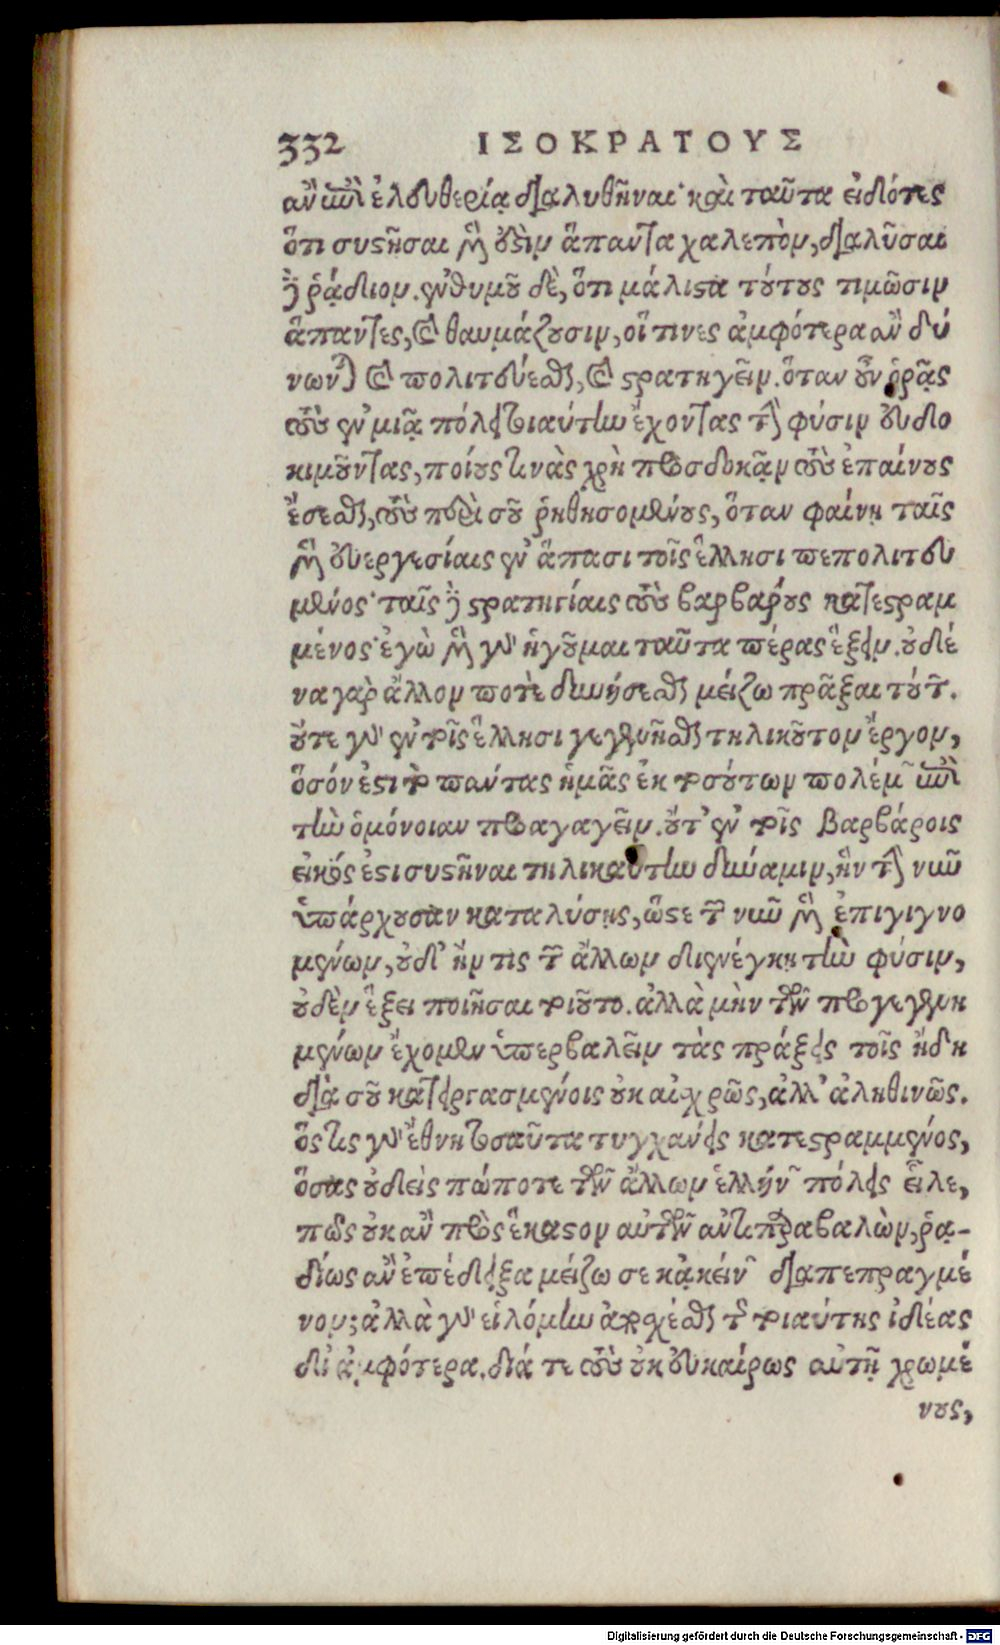 332 ΙΣΟΚΡΑΤΟΥΣ
ἂν ἐπὶ ἐλευθερίᾳ διαλυθῆναι· καὶ ταῦτα εἰδότες
ὅτι συστῆσαι μὲν οὖσιν ἅπαντα χαλεπὸν, διαλῦσαι
δὲ ῥᾴδιον. ἐνθυμοῦ δὲ, ὅτι μάλιστα τούτους τιμῶσιν
ἅπαντες, καὶ θαυμάζουσιν, οἵ τινες ἀμφότερα ἂν δύ
νωνται καὶ πολιτεύεσθαι, καὶ στρατηγεῖν. ὅταν οὖν ὁρᾷς
τοὺς ἐν μιᾷ πόλει τοιαύτην ἔχοντας τὴν φύσιν εὐδο
κιμοῦντας, ποίους τινὰς χρὴ προσδοκᾷν τοὺς ἐπαίνους
ἔσεσθαι, τοὺς περὶ σοῦ ῥηθησομένους, ὅταν φαίνῃ ταῖς
μὲν εὐεργεσίαις ἐν ἅπασι τοῖς ἕλλησι πεπολιτευ
μένος· ταῖς δὲ στρατηγίαις τοὺς βαρβάρους κατεστραμ
μένος· ἐγὼ μὲν γὰρ ἡγοῦμαι ταῦτα πέρας ἕξειν. οὐδέ
να γὰρ ἄλλον ποτὲ δυνήσεσθαι μείζω πρᾶξαι τούτων.
οὔτε γὰρ ἐν τοῖς ἕλλησι γεγενῆσθαι τηλικοῦτον ἔργον,
ὅσόν ἐστι τὸ πάντας ἡμᾶς ἐκ τοσούτων πολέμων ἐπὶ
τὴν ὁμόνοιαν προαγαγεῖν. οὔτ᾽ ἐν τοῖς βαρβάροις
εἰκός ἐστι συστῆναι τηλικαύτην δύναμιν, ἣν τὴν νῦν
ὑπάρχουσαν καταλύσῃς, ὥστε τῶν νῦν μὲν ἐπιγιγνο
μένων, οὐδ᾽ ἤν τις τῶν ἄλλων διενέγκῃ τὴν φύσιν,
οὐδὲν ἕξει ποιῆσαι τοιοῦτο. ἀλλὰ μὴν τῶν προγεγενη
μένων ἔχομεν ὑπερβαλεῖν τὰς πράξεις τοῖς ἤδη
διὰ σοῦ κατειργασμένοις οὐκ αἰχρῶς, ἀλλ᾽ ἀληθινῶς.
ὅς τις γὰρ ἔθνη τοσαῦτα τυγχάνεις κατεστραμμένος,
ὅσας οὐδεὶς πώποτε τῶν ἄλλων ἑλλήνων πόλεις εἷλε,
πῶς οὐκ ἂν πρὸς ἕκαστον αὐτῶν ἀντιπαραβαλὼν, ῥᾳ-
δίως ἂν ἐπέδειξα μείζω σε κἀκείνων διαπεπραγμέ
νον; ἀλλὰ γὰρ εἱλόμην ἀπέχεσθαι τῆς τοιαύτης ἰδέας
δι᾽ ἀμφότερα. διά τε τοὺς οὐκ εὐκαίρως αὐτῇ χρωμέ
νους,
Digitalisierung gefördert durch die Deutsche Forschungsgemeinschaft - DFG